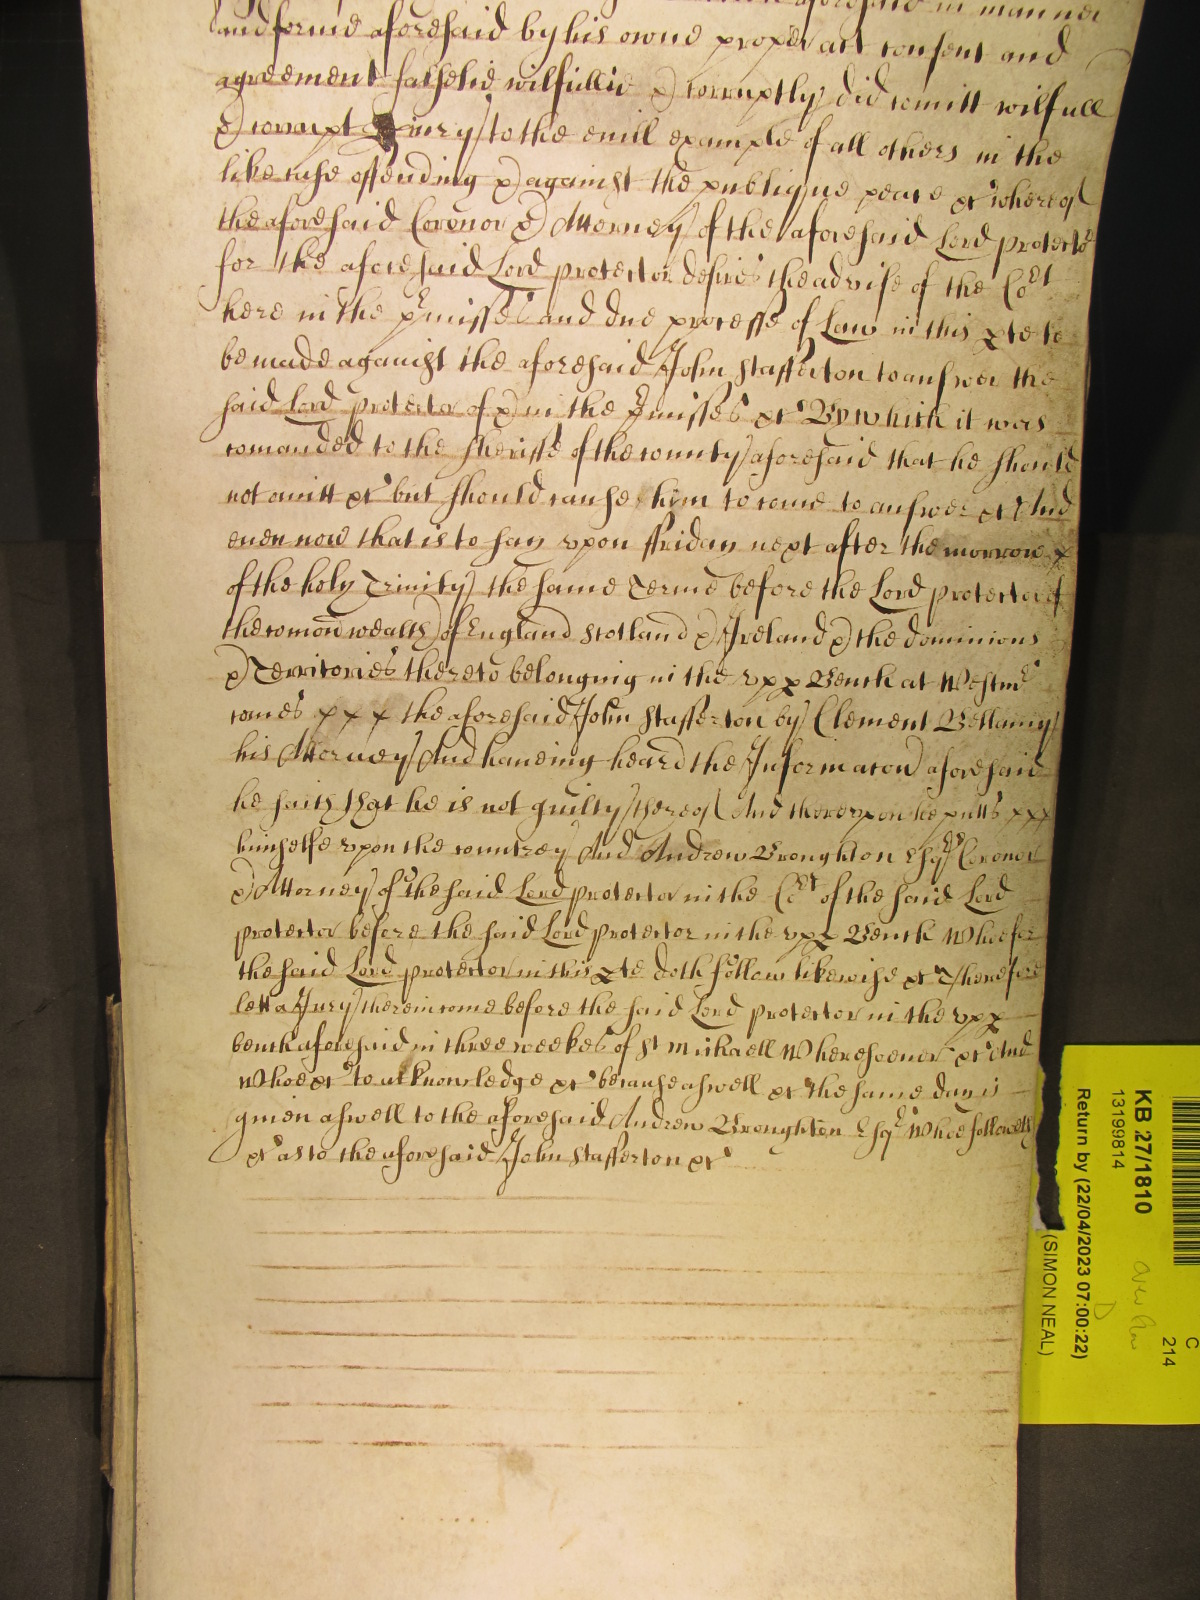 aforesaid in manner
and forme aforesaid by his owne proper act consent and
agreement falselie wilfullie & corruptly did comitt wilfull
& corrupt ꝑiury to the evill example of all others in the
like case offending & against the publique peace &c whereof
the aforesaid Coronor & Attorney of the aforesaid Lord protector
for the aforesaid Lord protector desires the advise of the Cort
here in the pʳmisses and due processe of Law in this ꝑte to
be made against the aforesaid John Stafferton to answer the
said Lord protector of & in the pʳmisses &c By which it was
comanded to the Sheriffe of the county aforesaid that he should
not omitt &c but should cause him to come to answer &c And
even now that is to say upon ffriday next after the morrow x
of the holy Trinity the same Terme before the Lord protector of
the comonwealth of England Scotland & Ireland & the dominions
& Territories thereto belonging in the upꝑ Bench at Westmʳ
comes x x x the aforesaid John Stafferton by Clement Bellamy
his Attorney And haveing heard the Informacon aforesaid
he saith that he is not guilty thereof And thereupon he putts xxx
himselfe upon the countrey And Andrew Broughton Esqʳ Coronor
& Attorney of the said Lord protector in the Cort of the said Lord
protector before the said Lord protector in the upꝑ Bench Whoe for
the said Lord protector in this ꝑte doth follow likewise &c Therefore
lett a Jury therein come before the said Lord protector in the upꝑ
bench aforesaid in three weekes of St Michaell Wheresoever &c And
Whoe &c to acknowledge &c because aswell &c the same day is
given aswell to the aforesaid Andrew Broughton Esqʳ Whoe followeth
&c as to the aforesaid John Stafferton &c
KB 27/1810
13199814
Return by (22/04/2023 07:00:22)
(SIMON NEAL)
C
214